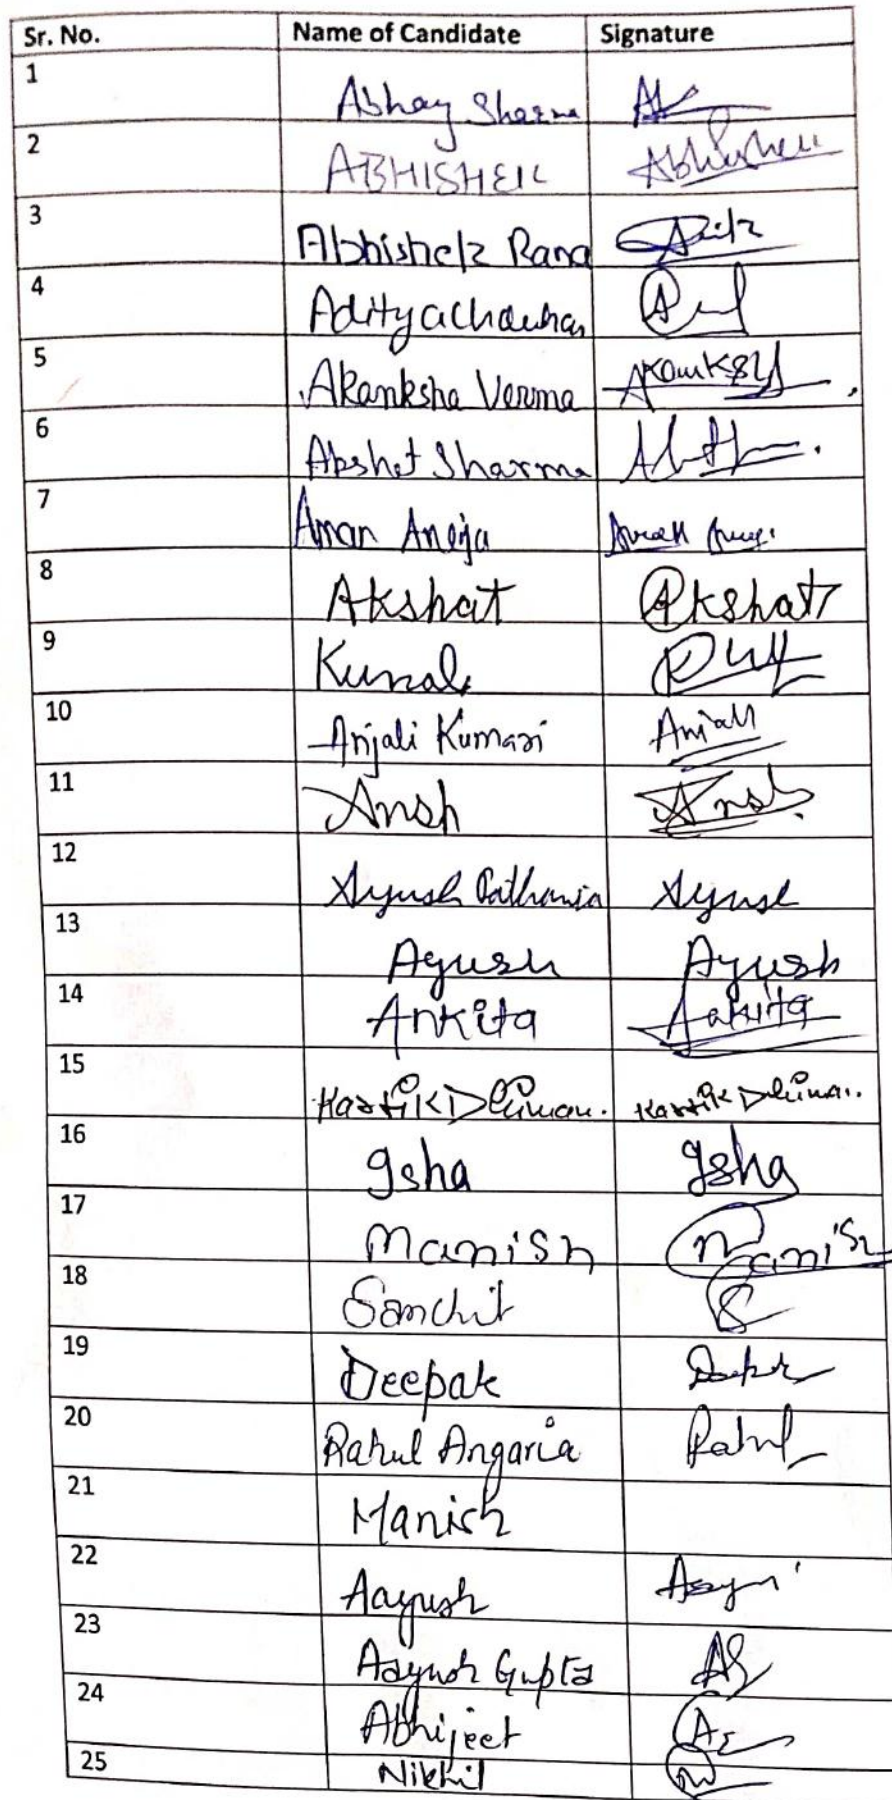 Sr. No. Name of Candidate Signature
1 Abhay Sharma
2 ABHISHEK Abhishek
3 Abhishek Rana
4 Aditya Chauhan
5 Akanksha Verma
6 Akshet Sharma
7 Aman Aneja Aman
8 Akshat Akshat
9 Kunal
10 Anjali Kumari Anjali
11 Ansh Ansh
12 Ayush Pathania Ayush
13 Ayush Ayush
14 Ankita Ankita
15 Kartik Dhiman. Kartik Dhiman.
16 Isha Isha
17 Manish Manish
18 Sanchit
19 Deepak
20 Rahul Angaria Rahul
21 Manish
22 Aayush
23 Aayush Gupta
24 Abhijeet
25 Nikhil